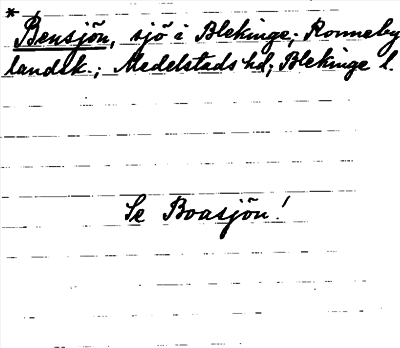 * Bensjön, sjö i Blekinge; Ronneby
landsk.; Medelstads hd; Blekinge l.
Se Boasjön!